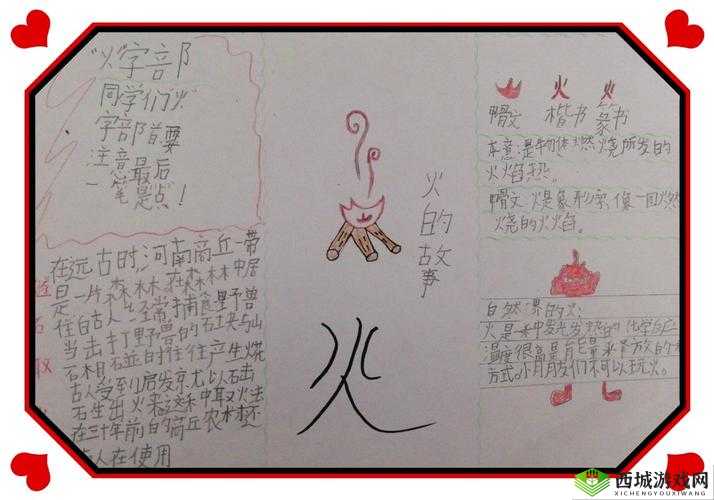 "火"字部
同学们"火"
字部首要
注意最后
一笔是点!
在远古时,河南商丘一带
是一片森林。在森林中居
住的古人,经常捕食野兽
当击打野兽的石块与山
石相碰时往往产生火花
古人受到启发就以石击
石生出火来这种取火法
在三十年前的商丘农村还
有人在使用
取
火的故事
火
火 火
甲骨文 楷书 篆书
本意是物体燃烧所发的
火焰热。
甲骨文 火是象形字,像一团燃
烧的火焰。
自然界的火:
火是一种发光发热的化学
温度很高是能量释放的
方式。小朋友们不可以玩火。
西城游戏网
XICHENGYOUXIWANG